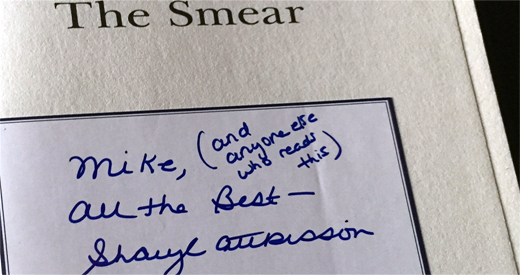 The Smear
Mike, (and
anyone else
who reads
this)
All the Best—
Sharyl Attkisson